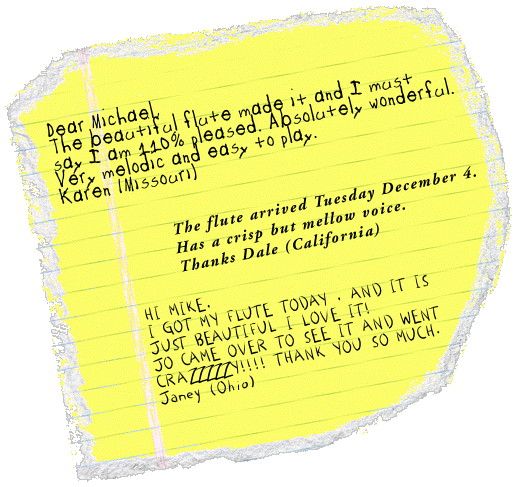 Dear Michael,
The beautiful flute made it and I must
say I am 110% pleased. Absolutely wonderful.
Very melodic and easy to play.
Karen (Missouri)
The flute arrived Tuesday December 4.
Has a crisp but mellow voice.
Thanks Dale (California)
HI MIKE.
I GOT MY FLUTE TODAY , AND IT IS
JUST BEAUTIFUL I LOVE IT!
JO CAME OVER TO SEE IT AND WENT
CRAZZZZZY!!!! THANK YOU SO MUCH.
Janey (Ohio)